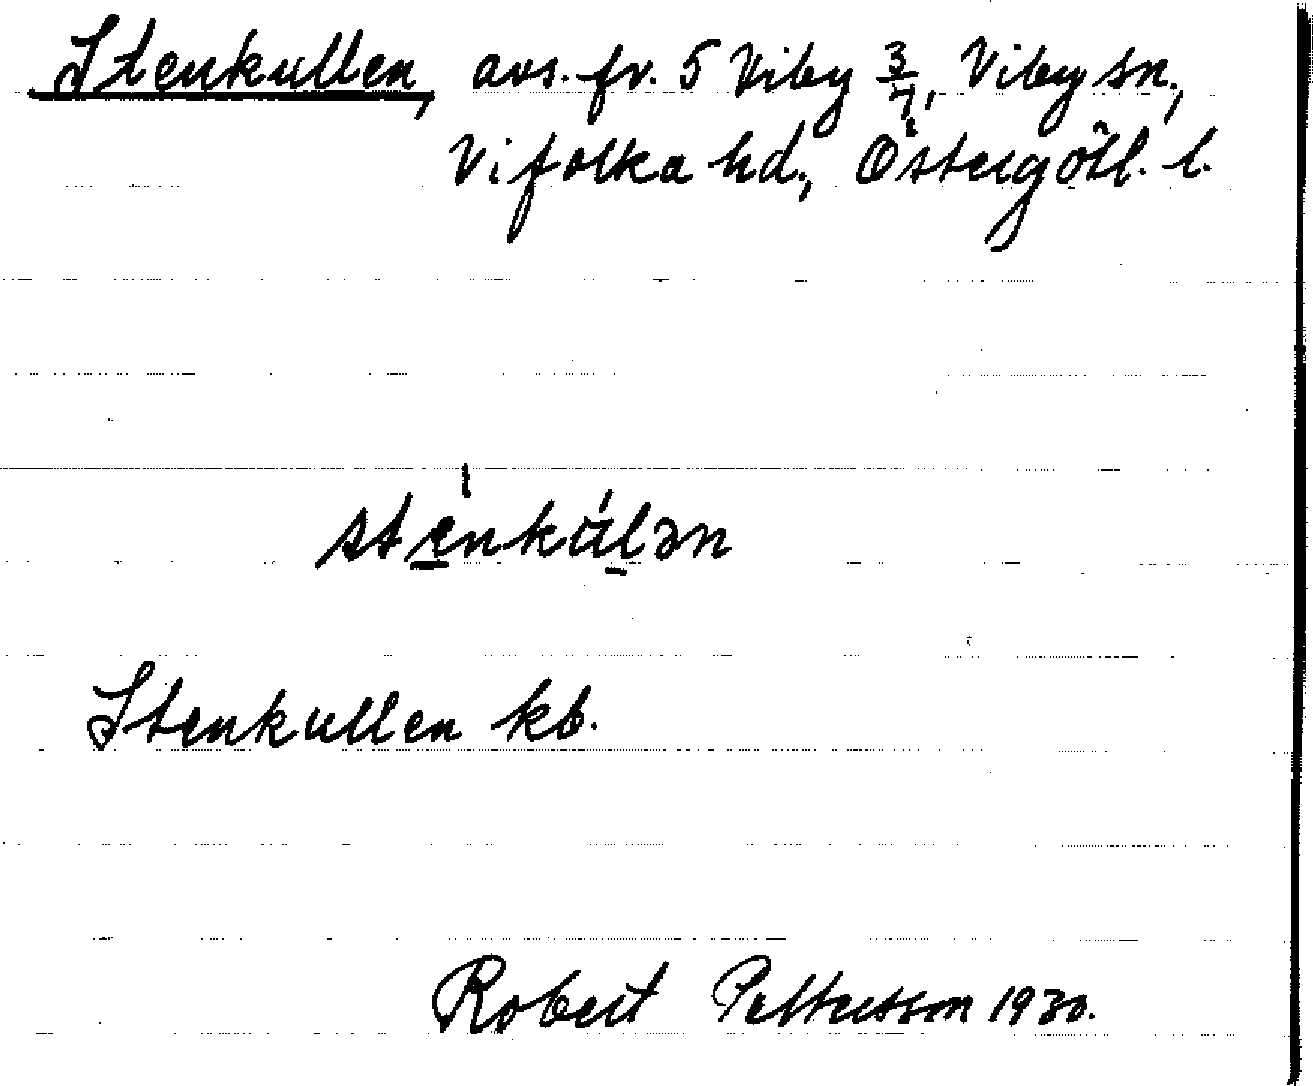 Stenkullen, avs. fr. 5 Viby 3/7, Viby sn.,
Vifolka hd., Östergötl. l.
stènkúlən
Stenkullen kb.
Robert Pettersson 1930.